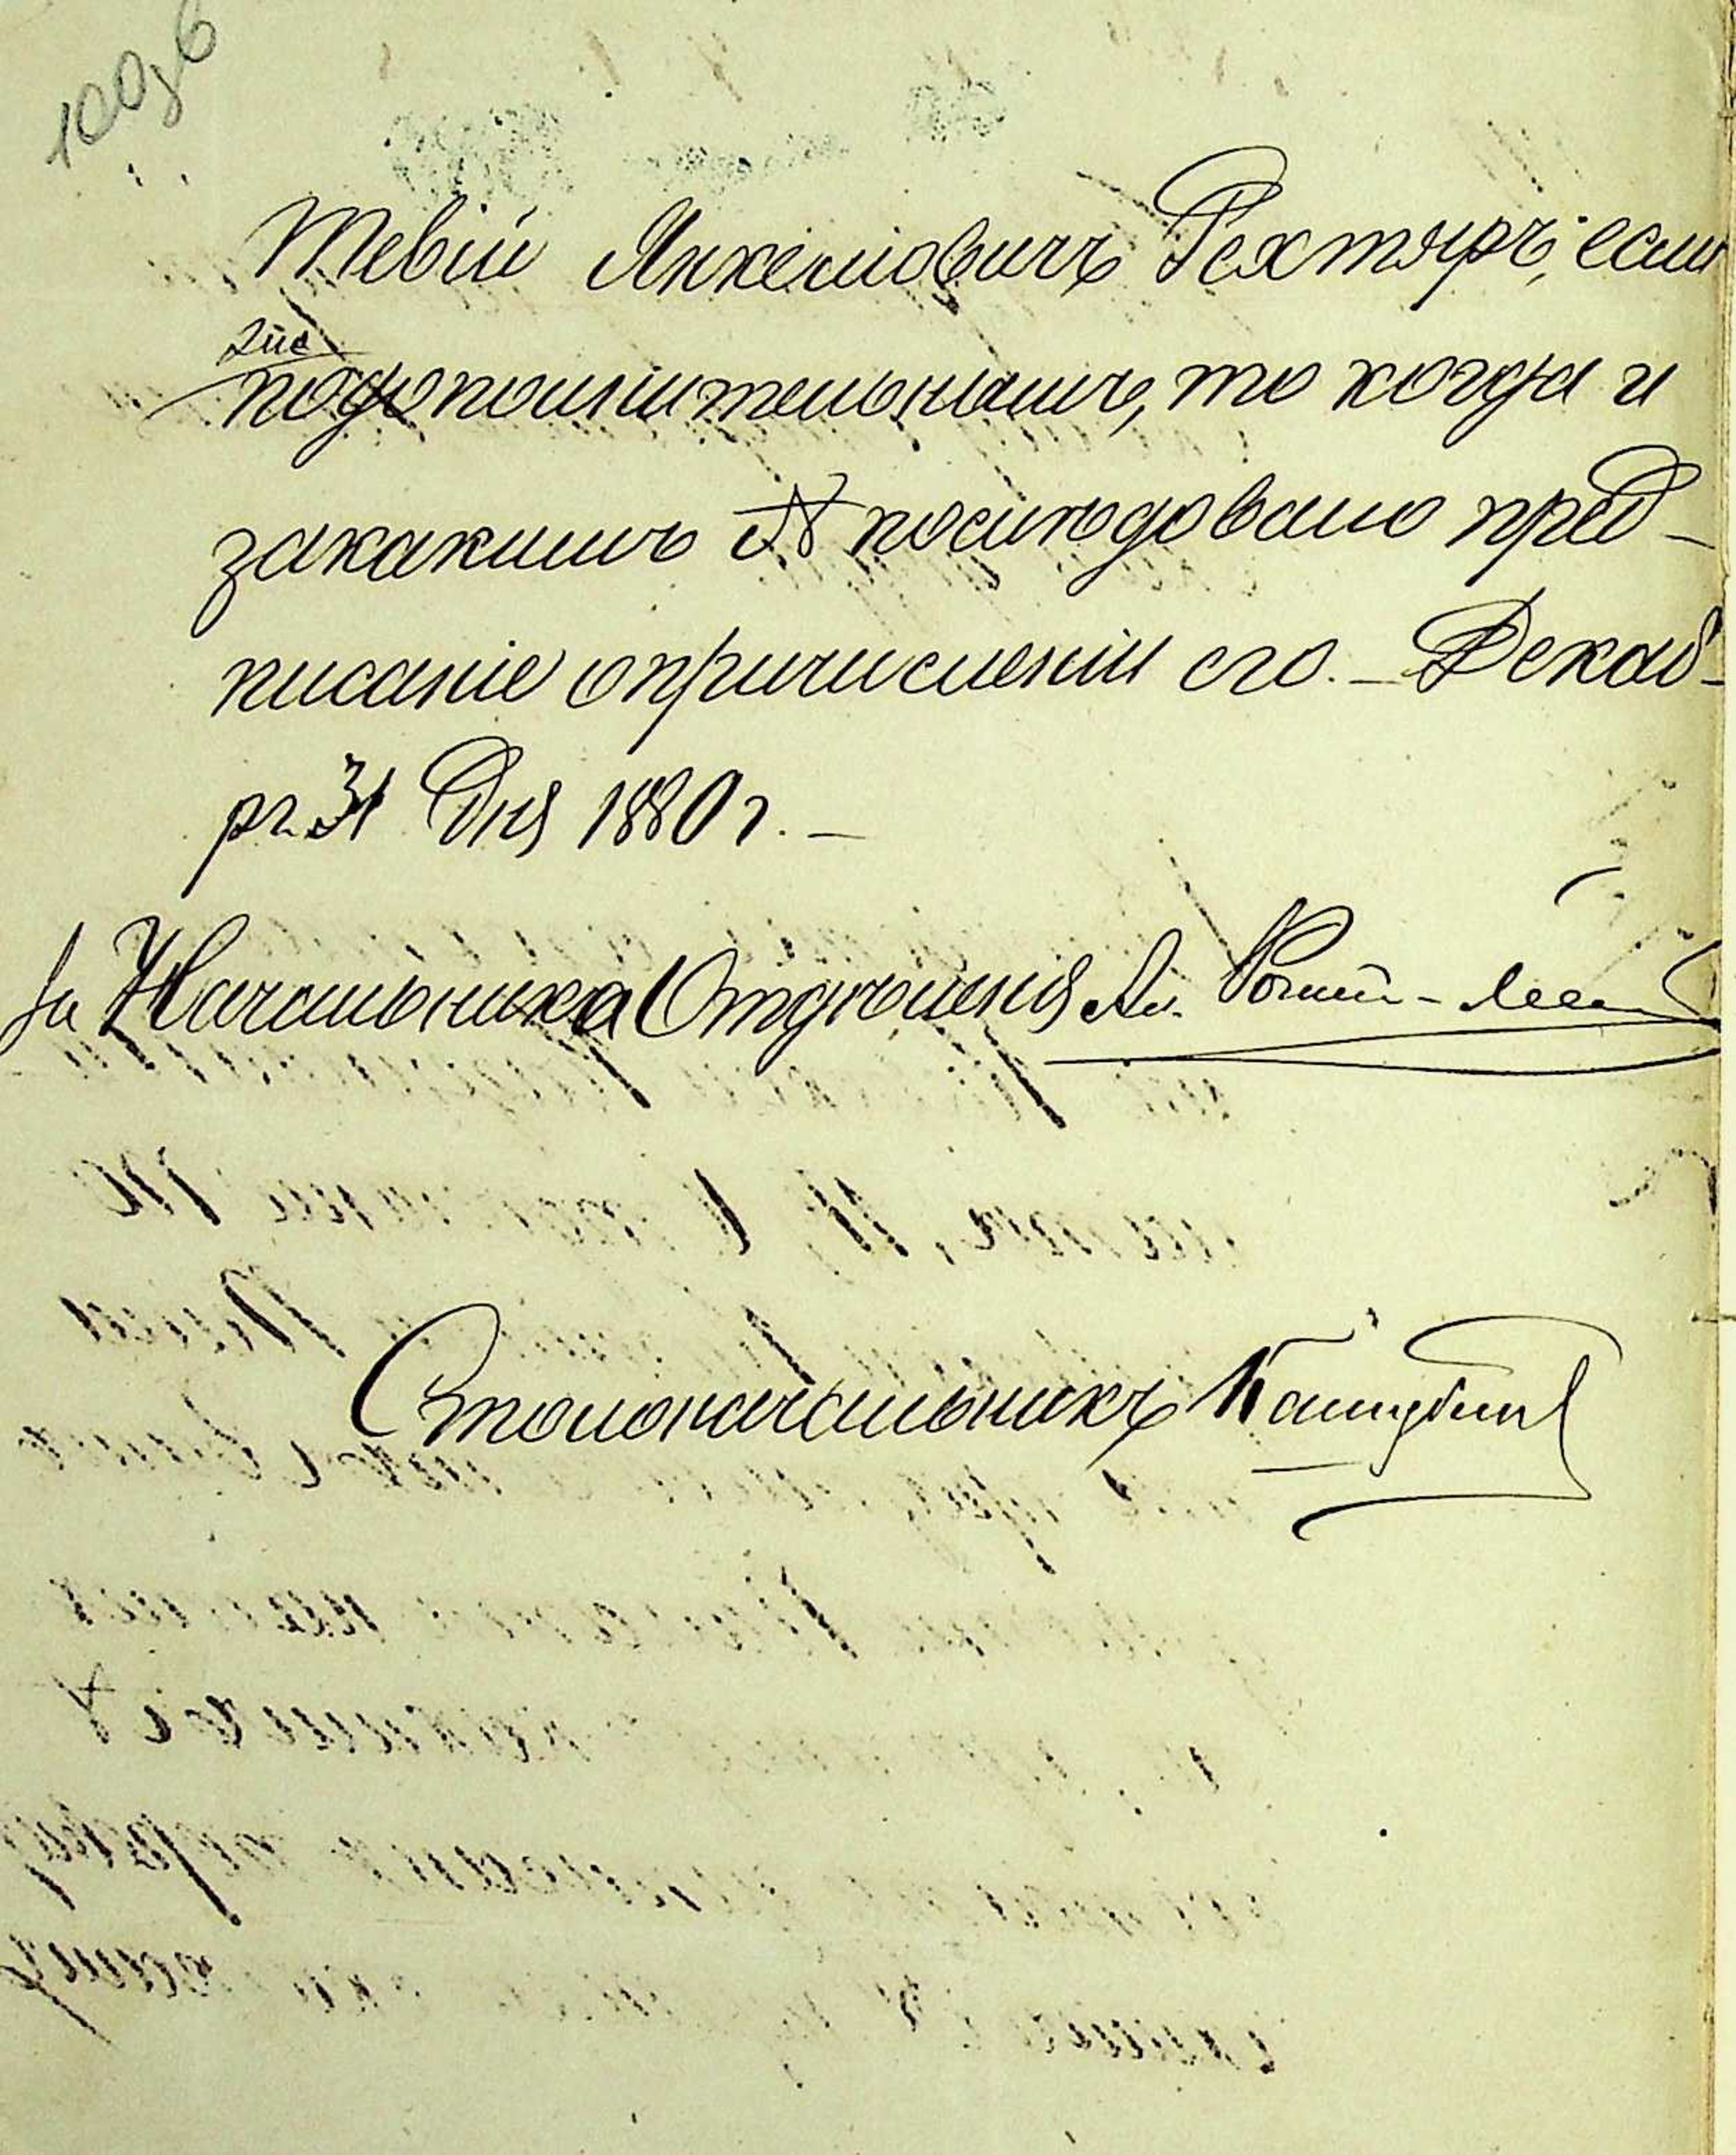 100об
Тевій Янкеліовичъ Рехтяръ, если
подополнительнымъ, то когда и
закакимъ № послѣдовало пред-
писаніе опричисленіи его. — Декаб-
ря 31 Дня 1880 г. —
За Начальника Отдѣленія Ал.
Столоначальникъ